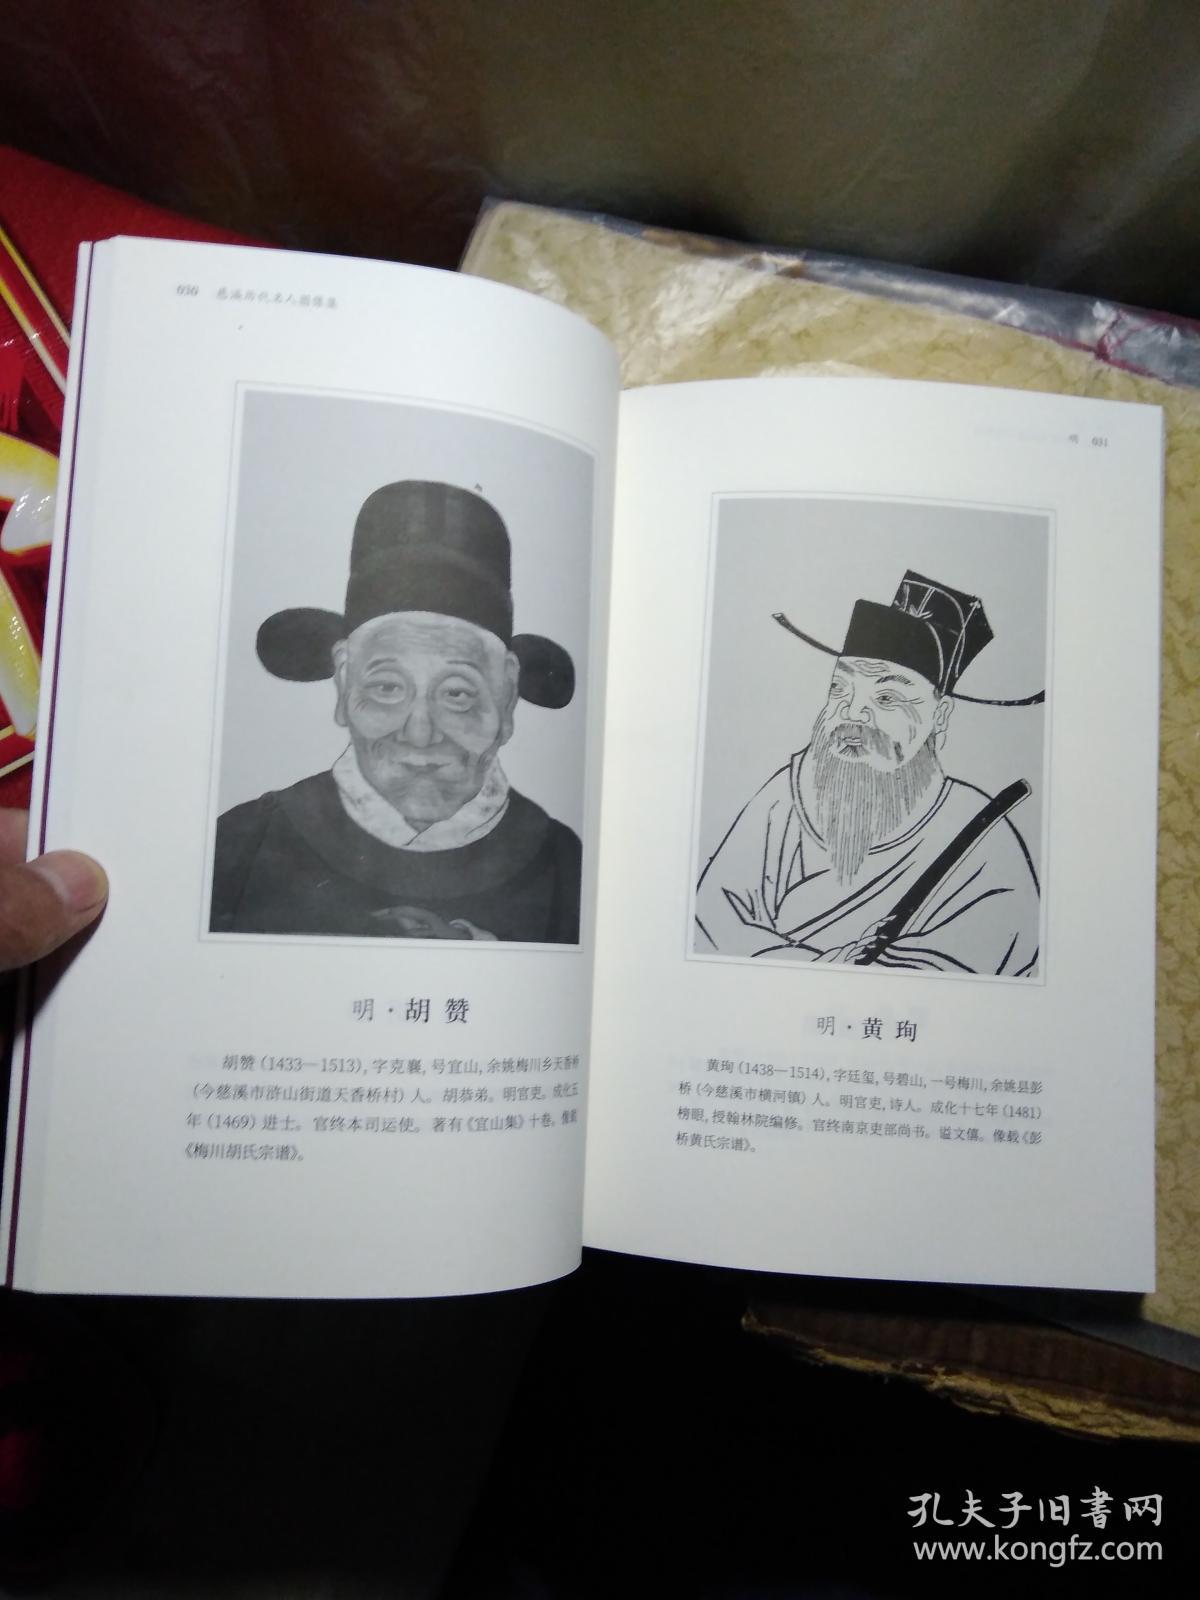 030 慈溪历代名人图像集
明·胡赞
胡赞(1433—1513),字克襄,号宜山,余姚梅川乡天香桥
(今慈溪市浒山街道天香桥村)人。胡恭弟。明官吏。成化五
年(1469)进士。官终本司运使。著有《宜山集》十卷。像载
《梅川胡氏宗谱》。
明 031
明·黄珣
黄珣(1438—1514),字廷玺,号碧山,一号梅川,余姚县彭
桥(今慈溪市横河镇)人。明官吏,诗人。成化十七年(1481)
榜眼,授翰林院编修。官终南京吏部尚书。谥文僖。像载《彭
桥黄氏宗谱》。
孔夫子旧书网
www.kongfz.com